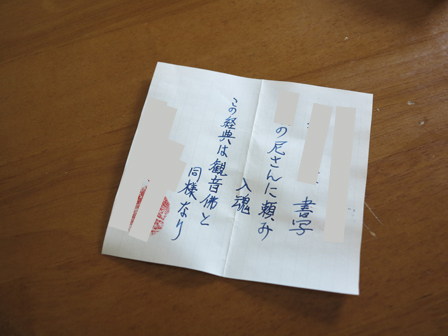 書写
の尼さんに頼み
入魂
この経典は観音佛と
同様なり